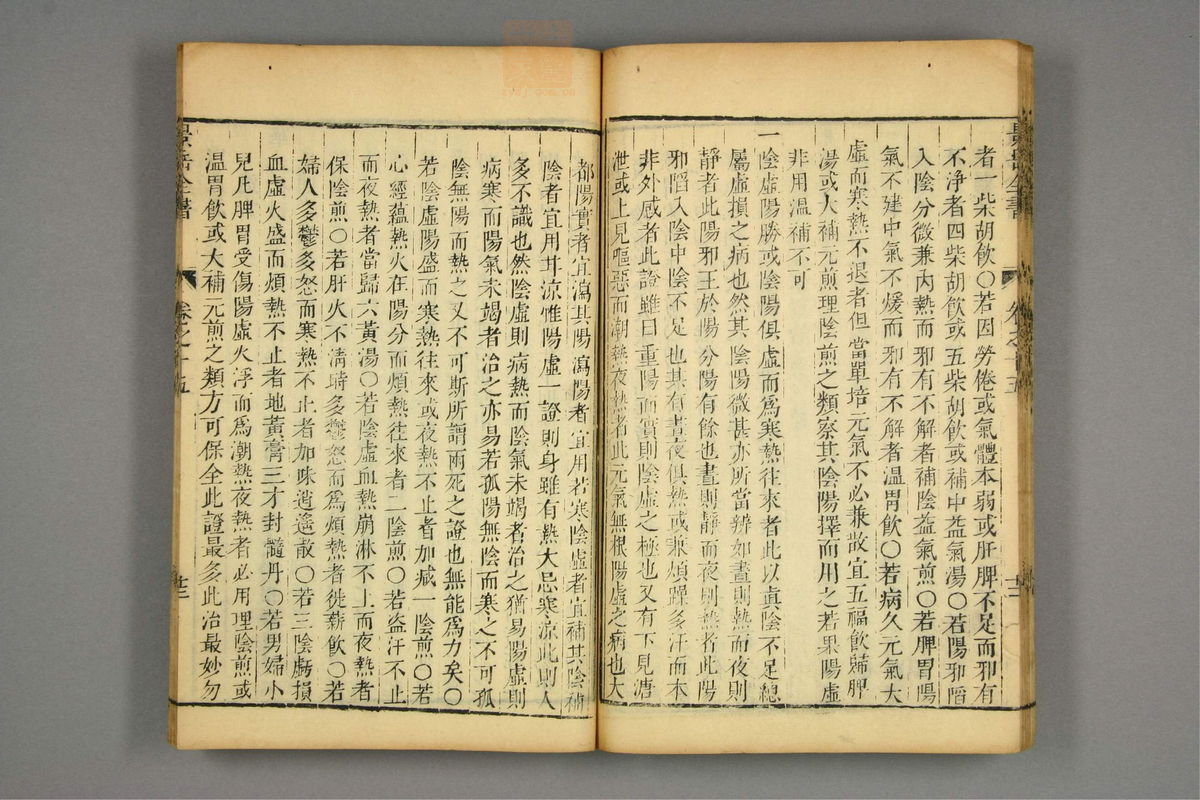 者一柴胡飲○若因勞倦或氣體本弱或肝脾不足而邪有
不淨者四柴胡飲或五柴胡飲或補中益氣湯○若陽邪陷
入陰分微兼內熱而邪有不解者補陰益氣煎○若脾胃陽
氣不健中氣不煖而邪有不解者溫胃飲○若病久元氣大
虛而寒熱不退者但當單培元氣不必兼散宜五福飲歸脾
湯或大補元煎理陰煎之類察其陰陽擇而用之若果陽虛
非用溫補不可
一陰虛陽勝或陰陽俱虛而爲寒熱往來者此以眞陰不足總
屬虛損之病也然其陰陽微甚亦所當辨如晝則熱而夜則
靜者此陽邪王於陽分陽有餘也晝則靜而夜則熱者此陽
邪陷入陰中陰不足也其有晝夜俱熱或兼煩躁多汗而本
非外感者此證雖曰重陽而實則陰虛之極也又有下見溏
泄或上見嘔惡而潮熱夜熱者此元氣無根陽虛之病也大
都陽實者宜瀉其陽瀉陽者宜用苦寒陰虛者宜補其陰補
陰者宜用甘涼惟陽虛一證則身雖有熱大忌寒涼此則人
多不識也然陰虛則病熱而陰氣未竭者治之猶易陽虛則
病寒而陽氣未竭者治之亦易若孤陽無陰而寒之不可孤
陰無陽而熱之又不可斯所謂兩死之證也無能爲力矣○
若陰虛陽盛而寒熱往來或夜熱不止者加減一陰煎○若
心經蘊熱火在陽分而煩熱往來者二陰煎○若盜汗不止
而夜熱者當歸六黃湯○若陰虛血熱崩淋不止而夜熱者
保陰煎○若肝火不清時多鬱怒而爲煩熱者徙薪飲○若
婦人多鬱多怒而寒熱不止者加味逍遙散○若三陰虧損
血虛火盛而煩熱不止者地黃膏三才封髓丹○若男婦小
兒凡脾胃受傷陽虛火浮而爲潮熱夜熱者必用理陰煎或
溫胃飲或大補元煎之類方可保全此證最多此治最妙勿
景岳全書
卷之十五